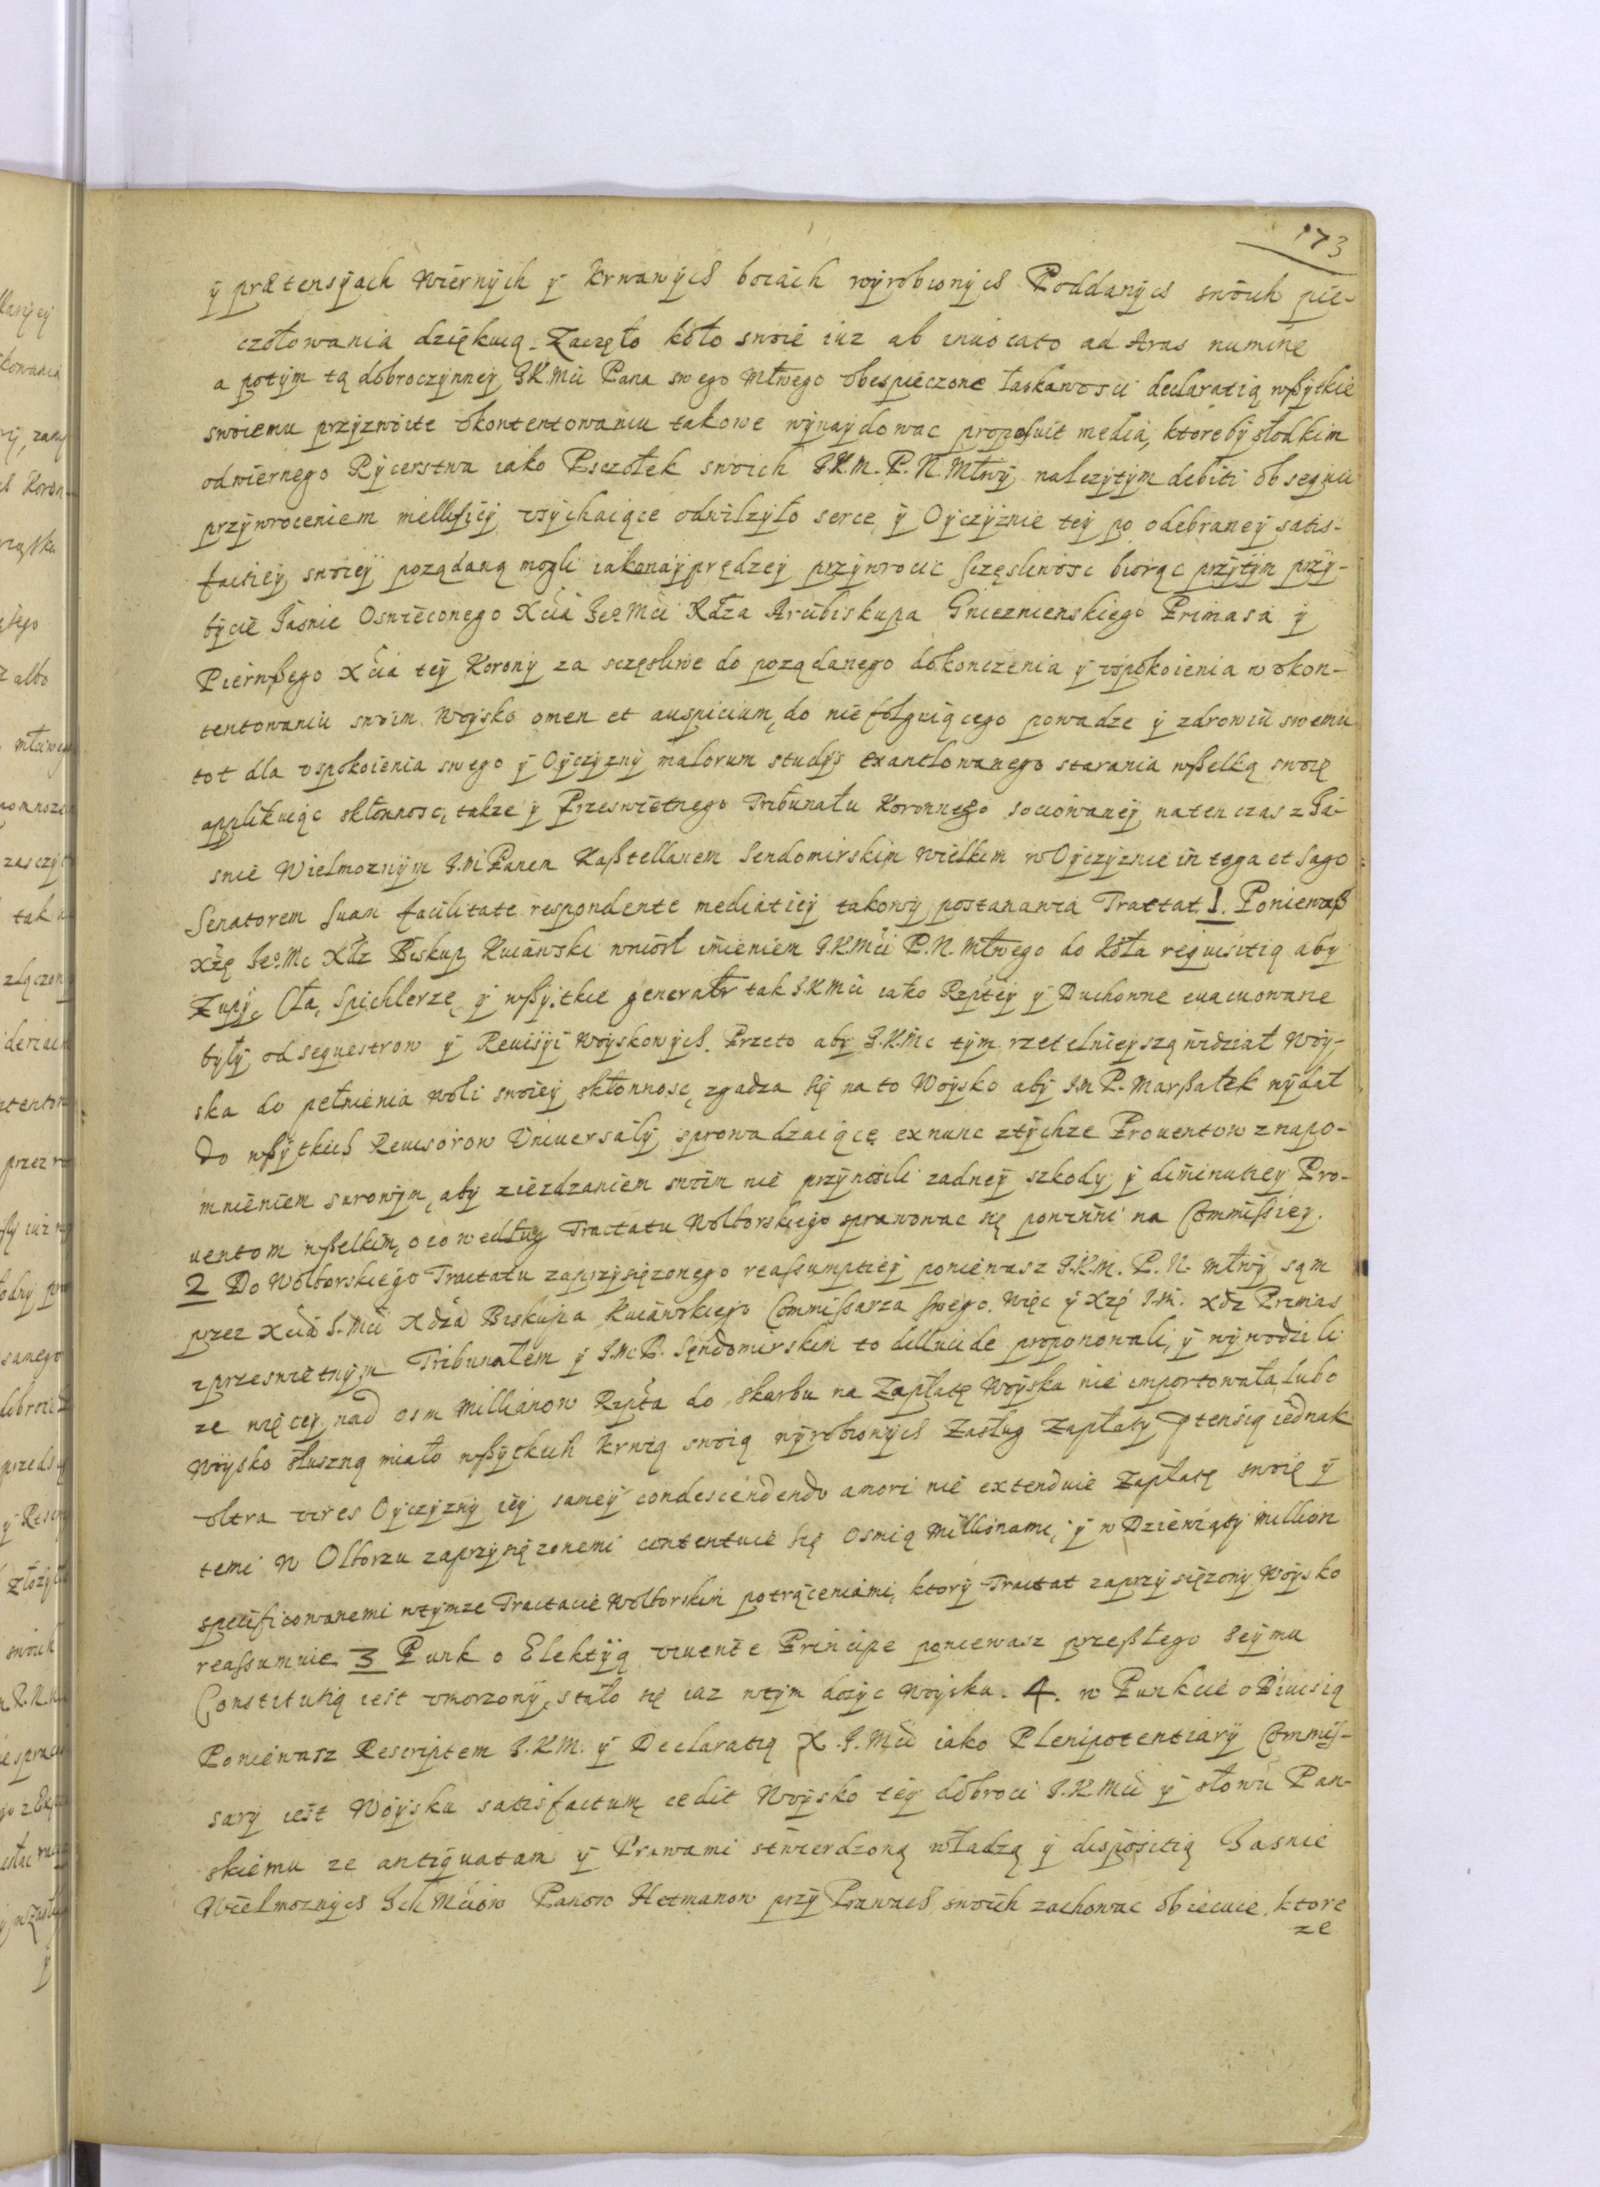 173
ÿ prætensÿach Wiernÿch ÿ krwawÿch bołach wyrobionÿch Poddanÿch swoich pie-
czołowania dziękuią. Zaczęło koło swoie iuz ab invocato ad Aras numine
a potÿm tą dobroczÿnneÿ J.K.Mci Pana swego Młwego obespieczone łaskawosci declaratią wßÿtkie
swoiemu przÿzwoite vkontentowaniu takowe wÿnaÿdowac proposuit media, ktorebÿ słodkim
odwiernego Rÿcerstwa iako Psczołek swoich J.K.M. P. N. Młwÿ nalezÿtÿm debiti obsequii
przÿwroceniem mellificij vsÿchaiące odwilzÿło serce ÿ Oÿczÿznie teÿ po odebraneÿ satis-
factieÿ swoieÿ poządaną mogli iakonaÿprędzeÿ przÿwrocic sczęsliwosc biorąc przÿtÿm przÿ-
bÿcie Jasnie Oswieconego Xcia Jeo Mci Xdza Arcibiskupa Gnieznienskiego Primasa ÿ
Pierwßego Xcia teÿ Koronÿ za sczęsliwe do poządanego dokonczenia ÿ vspokoienia w vkon-
tentowaniu swoim Woÿsko omen et auspicium, do niefolguiącego powadze ÿ zdrowiu swemu
tot dla vspokoienia swego ÿ Oÿczÿznÿ malorum studÿs exantlowanego starania wßelką swoię
applikuiąc skłonnosc, takze ÿ Przeswietnego Tribunału Koronnego sociowaneÿ natenczas z Ja-
snie Wielmoznÿm J.M Panem Kaßtellanem Sendomirskim Wielkim w Oÿczÿznie in toga et sago
Senatorem suam facilitate respondente mediatieÿ takowÿ postanawia Tractat. 1. Poniewaß
Xżę Jeo Mc Xdz Biskup Kuiawski wniosł imieniem J.K.Mci P. N. Młwego do Koła requisitią abÿ
Zupÿ, Cła, Spichlerze, ÿ wßÿtkie generalr tak J.K.Mci iako Rzpteÿ ÿ Duchowne euacuowane
bÿłÿ od sequestrow ÿ Reuisÿi Woÿskowÿch. Przeto abÿ J.K.Mc tÿm rzetelnieÿszą widział Woÿ-
ska do pełnienia woli swoieÿ skłonnosc, zgadza się na to Woÿsko abÿ J.M P. Marßałek wÿdał
Do wßÿtkich Reuisorow Uniuersałÿ sprowadzaiące ex nunc ztÿchze Prouentow z napo-
mnieniem surowÿm, abÿ ziezdzaniem swoim nie przÿnosili zadneÿ szkodÿ ÿ diminutieÿ Pro-
uentom wßelkim, oco według Tractatu Wolborskiego sprawowac się powinni na Commissieÿ.
2 Do Wolborskiego Tractatu zaprzÿsięzonego reassumptieÿ poniewasz J.K.M. P. N. Młwÿ sąm
przez Xcia J.Mci Xdza Biskupa Kuiawskiego Commissarza swego. Więc ÿ Xzę J.M. Xdz Primas
z przeswietnÿm Tribunałem ÿ J.Mc P. Sendomirskim to dellucide proponowali, ÿ wÿwodzili
ze więceÿ nad osm Millionow Rzpta do skarbu na Zapłatę Woÿska nie importowała, lubo
Woÿsko słuszną miało wßÿtkich krwią swoią wÿrobionÿch Zasług zapłatÿ ptensią iednak
vltra vires Oÿczÿznÿ ieÿ sameÿ condescendendo amori nie extenduie Zapłatę swoię ÿ
temi w Olborzu zaprzÿsięzonemi contentuie się osmią Millionami, ÿ w Dziewiątÿ Million
specificowanemi wtÿmze Tractacie Wolborskim potrąceniami, ktorÿ Tractat zaprzÿsięzonÿ Woÿsko
reassumuie. 3 Punk o Elektÿą viuente Principe poniewasz przeßłego Seÿmu
Constitutią iest vmorzonÿ, stało się iuz wtÿm dosÿc Woÿsku. 4. w Punkcie o Diuisią
Poniewasz Rescriptem J.K.M. ÿ Declaratią X.J.Mci iako Plenipotentiarÿ Commis-
sarÿ iest Woÿsku satisfactum, cedit Woÿsko teÿ dobroci J.K.Mci ÿ słowu Pan-
skiemu ze antiquatam ÿ Prawami stwierdzoną władzą ÿ dispositią Jasnie
Wielmoznÿch Ich Mciow Panow Hetmanow przÿ Prawach swoich zachowac obiecuie, ktore
ze